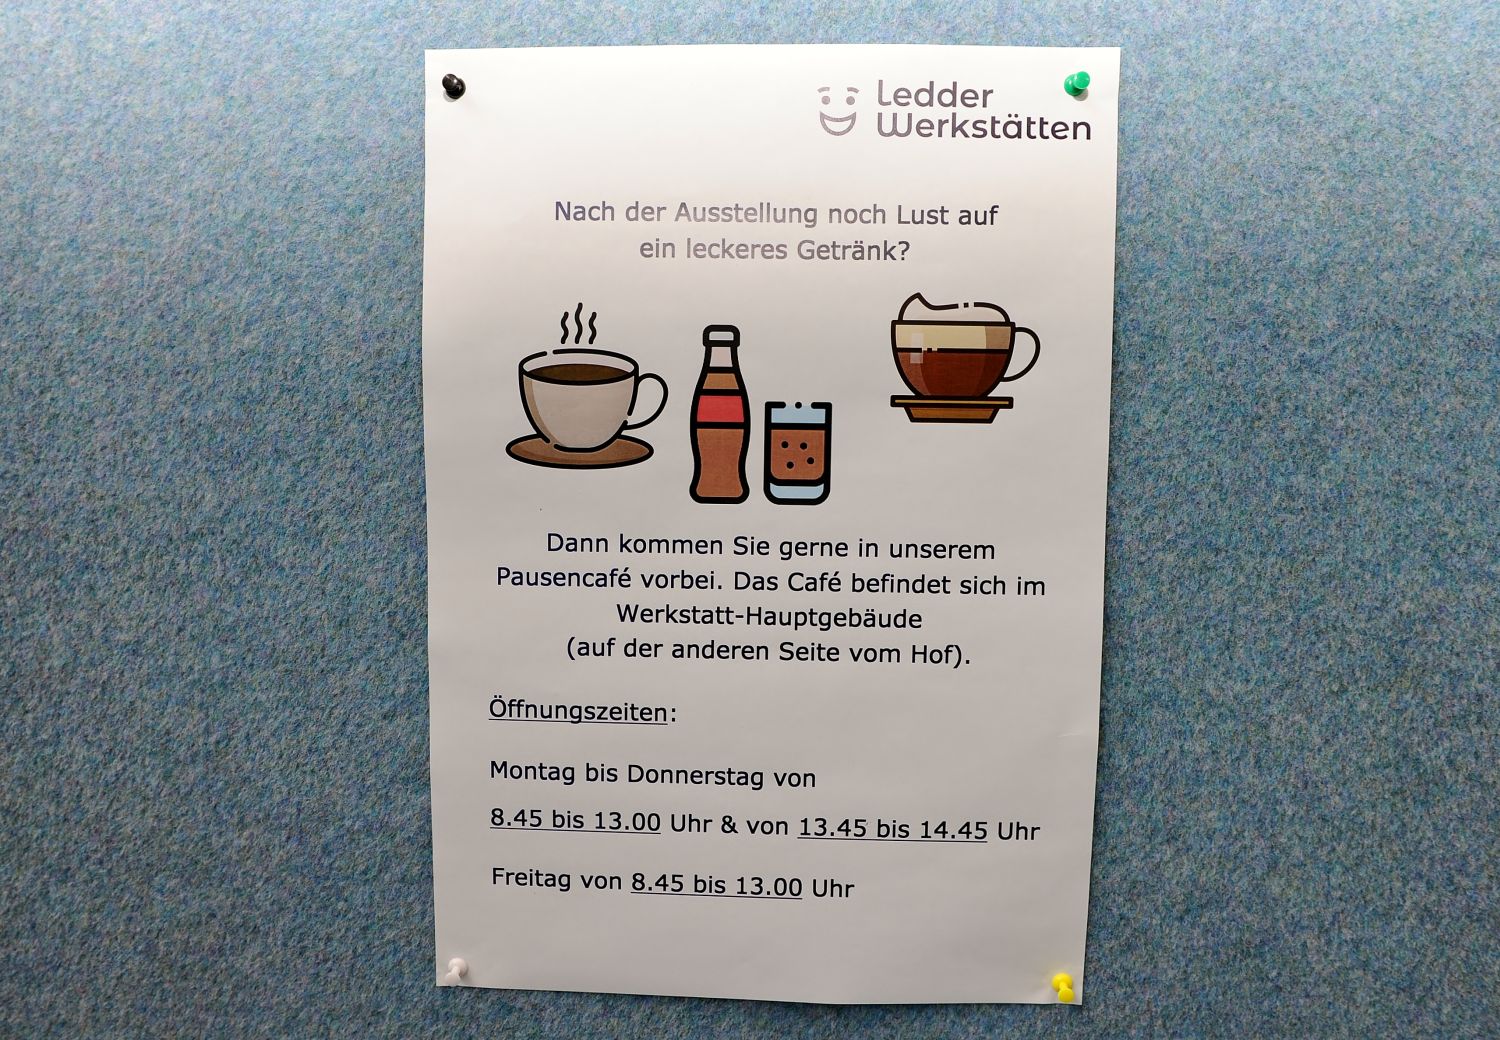 Ledder
Werkstätten
Nach der Ausstellung noch Lust auf
ein leckeres Getränk?
Dann kommen Sie gerne in unserem
Pausencafé vorbei. Das Café befindet sich im
Werkstatt-Hauptgebäude
(auf der anderen Seite vom Hof).
Öffnungszeiten:
Montag bis Donnerstag von
8.45 bis 13.00 Uhr & von 13.45 bis 14.45 Uhr
Freitag von 8.45 bis 13.00 Uhr